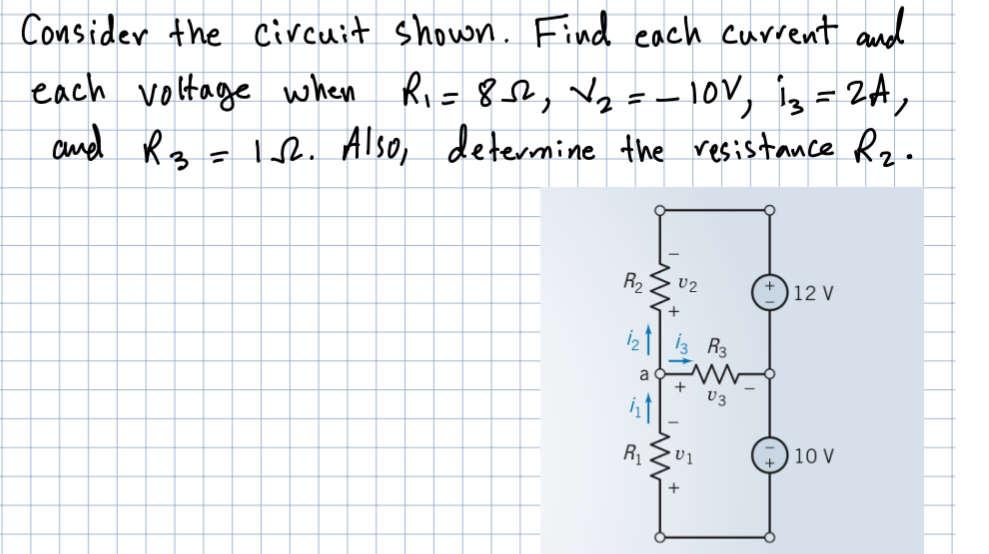 Consider the circuit shown. Find each current and
each voltage when R₁ = 8Ω, V₂ = -10V, i₃ = 2A,
and R₃ = 1Ω. Also, determine the resistance R₂.
−
R₂ v₂ + − 12 V
+
i₂ i₃ R₃
a + v₃ −
i₁ −
R₁ v₁ − + 10 V
+